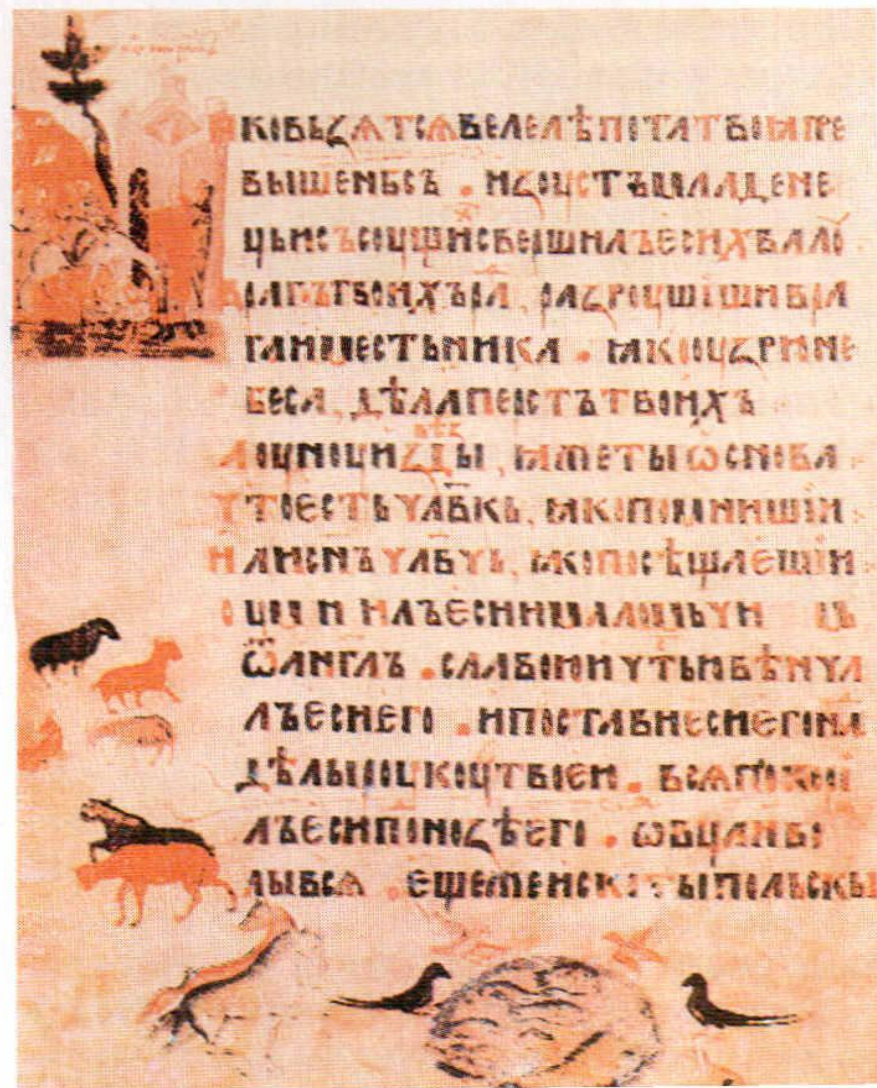 ꙗко вьзѧтсѧ велелѣпота твоꙗ пре
вышеньбсъ . изоустъ младене
цьисъсоущисвершилъесихвало
врагътвоихъра, разроушишивра
гаиместьника . ꙗкооузрюне
беса, дѣлаперстътвоихъ
лоуноуизвѣзды, ꙗжетыѡснова
чтоестьчл҃вкъ, ꙗкопомнишии
илисн҃ъчл҃вчь, ꙗкопосѣщаешии
оумнилъесиималомьчи мь
ѿанг҃лъ . славоюичтьювѣнча
лъесиего . ипоставиесиегона
дѣлыроукоутвоею . всѧпокори
лъесипонозѣего . ѡвцаиво
лывсѧ . ещежеискотыпольскы